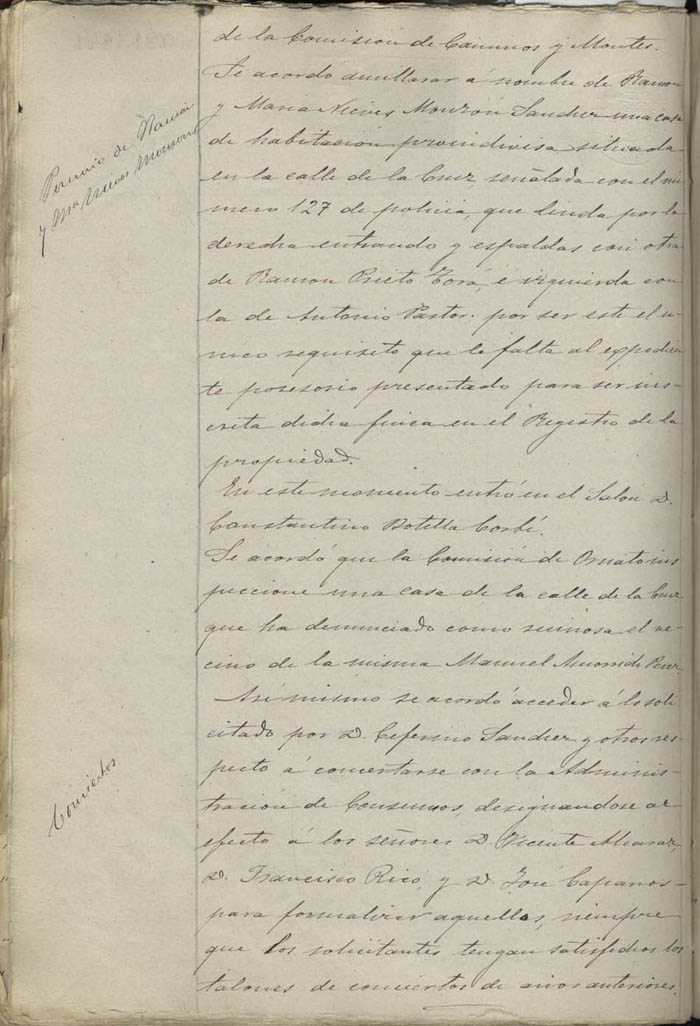 de la Comisión de Caminos y Montes.
Se acordó amillarar á nombre de Ramon
y Maria Nieves Monzón Sanchez una casa
de habitación proindivisa, situada
en la calle de la Cruz, señalada con el nu-
mero 127 de policia, que linda por la
derecha entrando y espaldas con otra
de Ramon Prieto Torá, é izquierda con
la de Antonio Pastor: por ser este el u-
nico requisito que le falta al expedien-
te posesorio presentado para ser ins-
crita dicha finca en el Registro de la
propiedad.
En este momento entró en el Salón D.
Constantino Botella Corbí.
Se acordó que la Comisión de Ornato ins
peccione una casa de la calle de la Cruz
que ha denunciado como ruinosa el ve-
cino de la misma Manuel Perez
Asi mismo se acordó acceder á lo soli
citado por D. Ceferino Sanchez y otros res-
pecto á concertarse con la Adminis-
tración de Consumos, designandose al
efecto á los señores D. Vicente Alcaraz,
D. Francisco Rico, y D. José Capanos-
para formalizar aquellos, siempre
que los solicitantes tengan satisfechos los
talones de conciertos de años anteriores.
de Ramón
y Mª Nieves Monzon
Conciertos